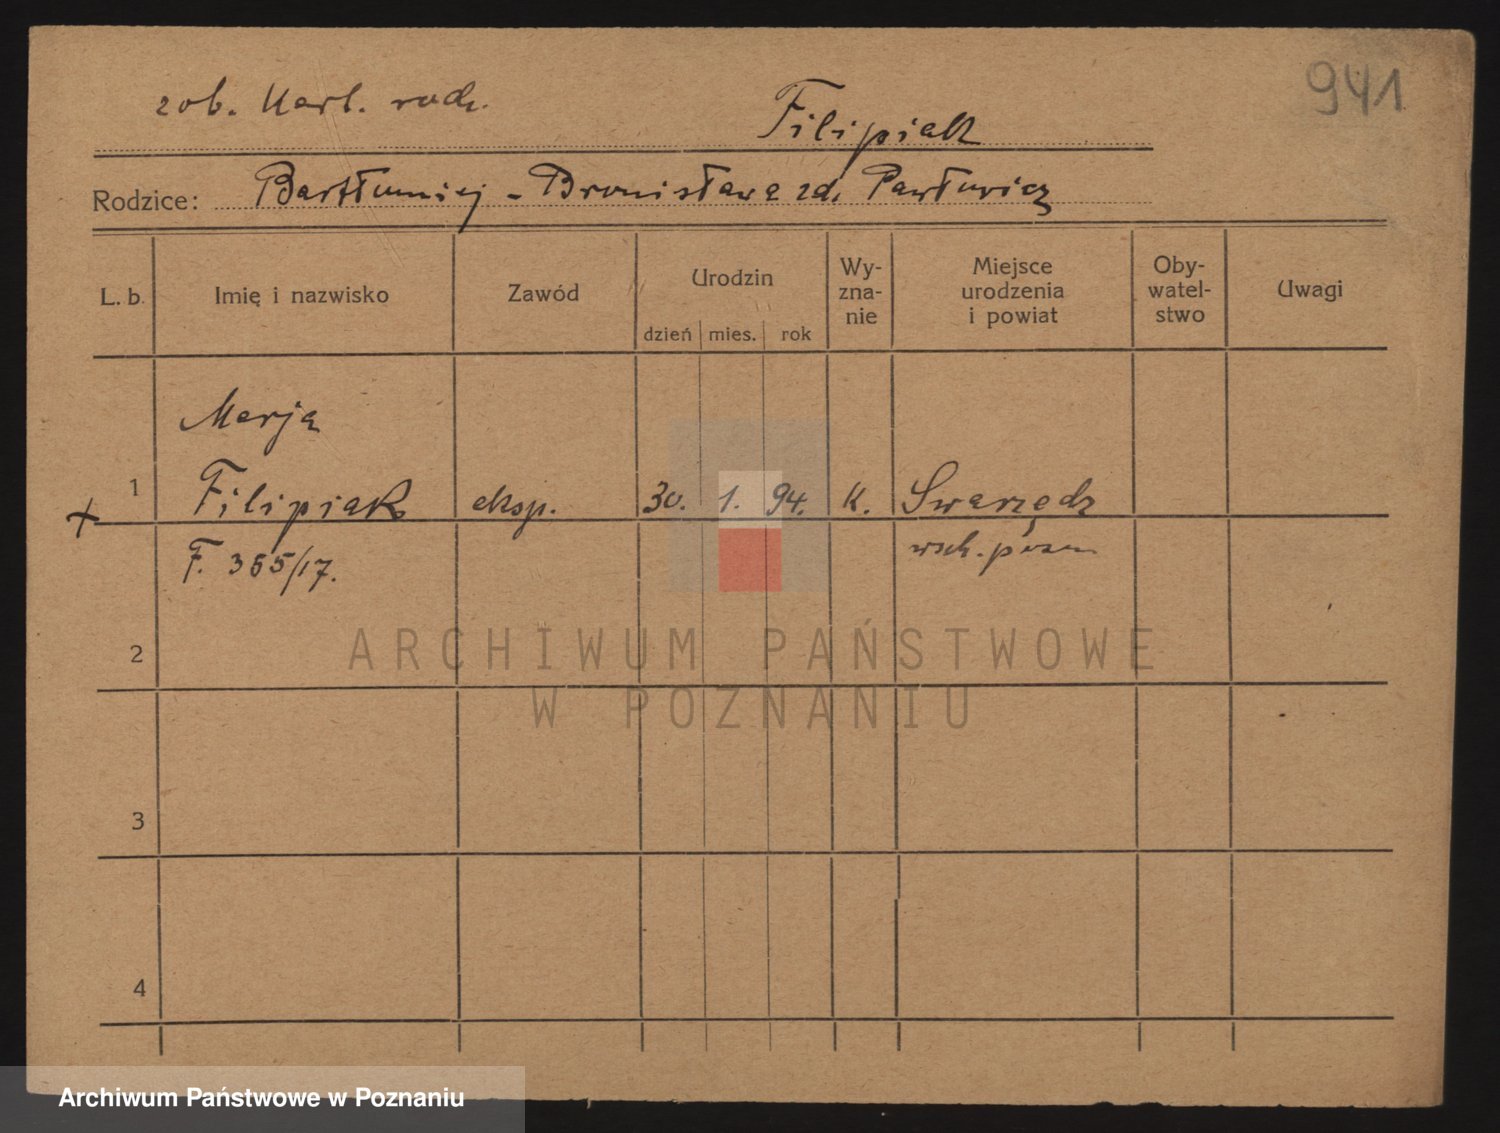 941
zob. Kart. rodz.
Filipiak
Rodzice: Bartłumiej - Bronisława zd. Pawłowicz
L. b. Imię i nazwisko Zawód Urodzin dzień mies. rok Wy-zna-nie Miejsce urodzenia i powiat Oby-watel-stwo Uwagi
Marja
1 Filipiak eksp. 30. 1. 94. K. Swarzędz
F. 365/17. wsch. pozn
2
3
4
ARCHIWUM PAŃSTWOWE
W POZNANIU
Archiwum Państwowe w Poznaniu